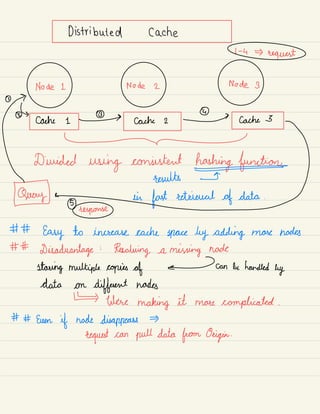 Distributed Cache
1-4 ⇒ request
Node 1
Node 2
Node 3
①
②
③
④
Cache 1
Cache 2
Cache 3
Divided using consistent hashing function.
results
Query
in fast retrieval of data.
⑤
response
## Easy to increase cache space by adding more nodes
## Disadvantage: Resolving a missing node
storing multiple copies of
Can be handled by
data on different nodes
Were making it more complicated.
## Even if node disappears ⇒
request can pull data from Origin.